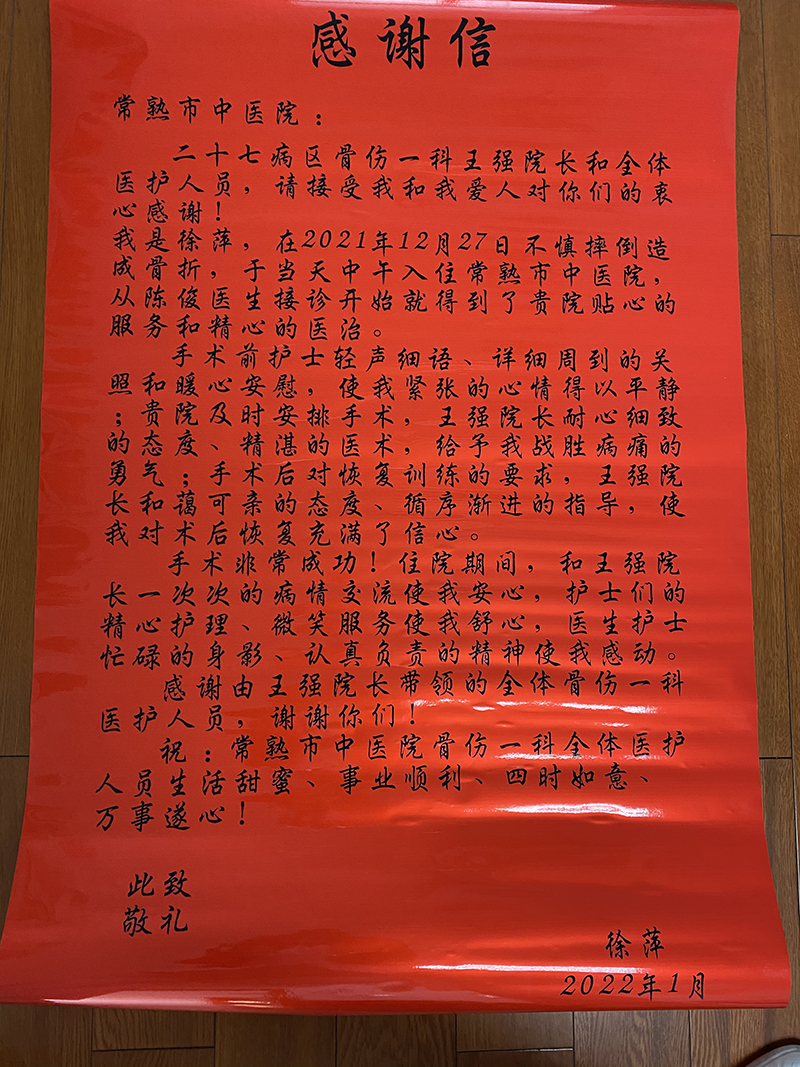 感谢信
常熟市中医院：
二十七病区骨伤一科王强院长和全体
医护人员，请接受我和我爱人对你们的衷
心感谢！
我是徐萍，在2021年12月27日不慎摔倒造
成骨折，于当天中午入住常熟市中医院，
从陈俊医生接诊开始就得到了贵院贴心的
服务和精心的医治。
手术前护士轻声细语、详细周到的关
照和暖心安慰，使我紧张的心情得以平静
；贵院及时安排手术，王强院长耐心细致
的态度、精湛的医术，给予我战胜病痛的
勇气；手术后对恢复训练的要求，王强院
长和蔼可亲的态度、循序渐进的指导，使
我对术后恢复充满了信心。
手术非常成功！住院期间，和王强院
长一次次的病情交流使我安心，护士们的
精心护理、微笑服务使我舒心，医生护士
忙碌的身影、认真负责的精神使我感动。
感谢由王强院长带领的全体骨伤一科
医护人员，谢谢你们！
祝：常熟市中医院骨伤一科全体医护
人员生活甜蜜、事业顺利、四时如意、
万事遂心！
此致
敬礼
徐萍
2022年1月